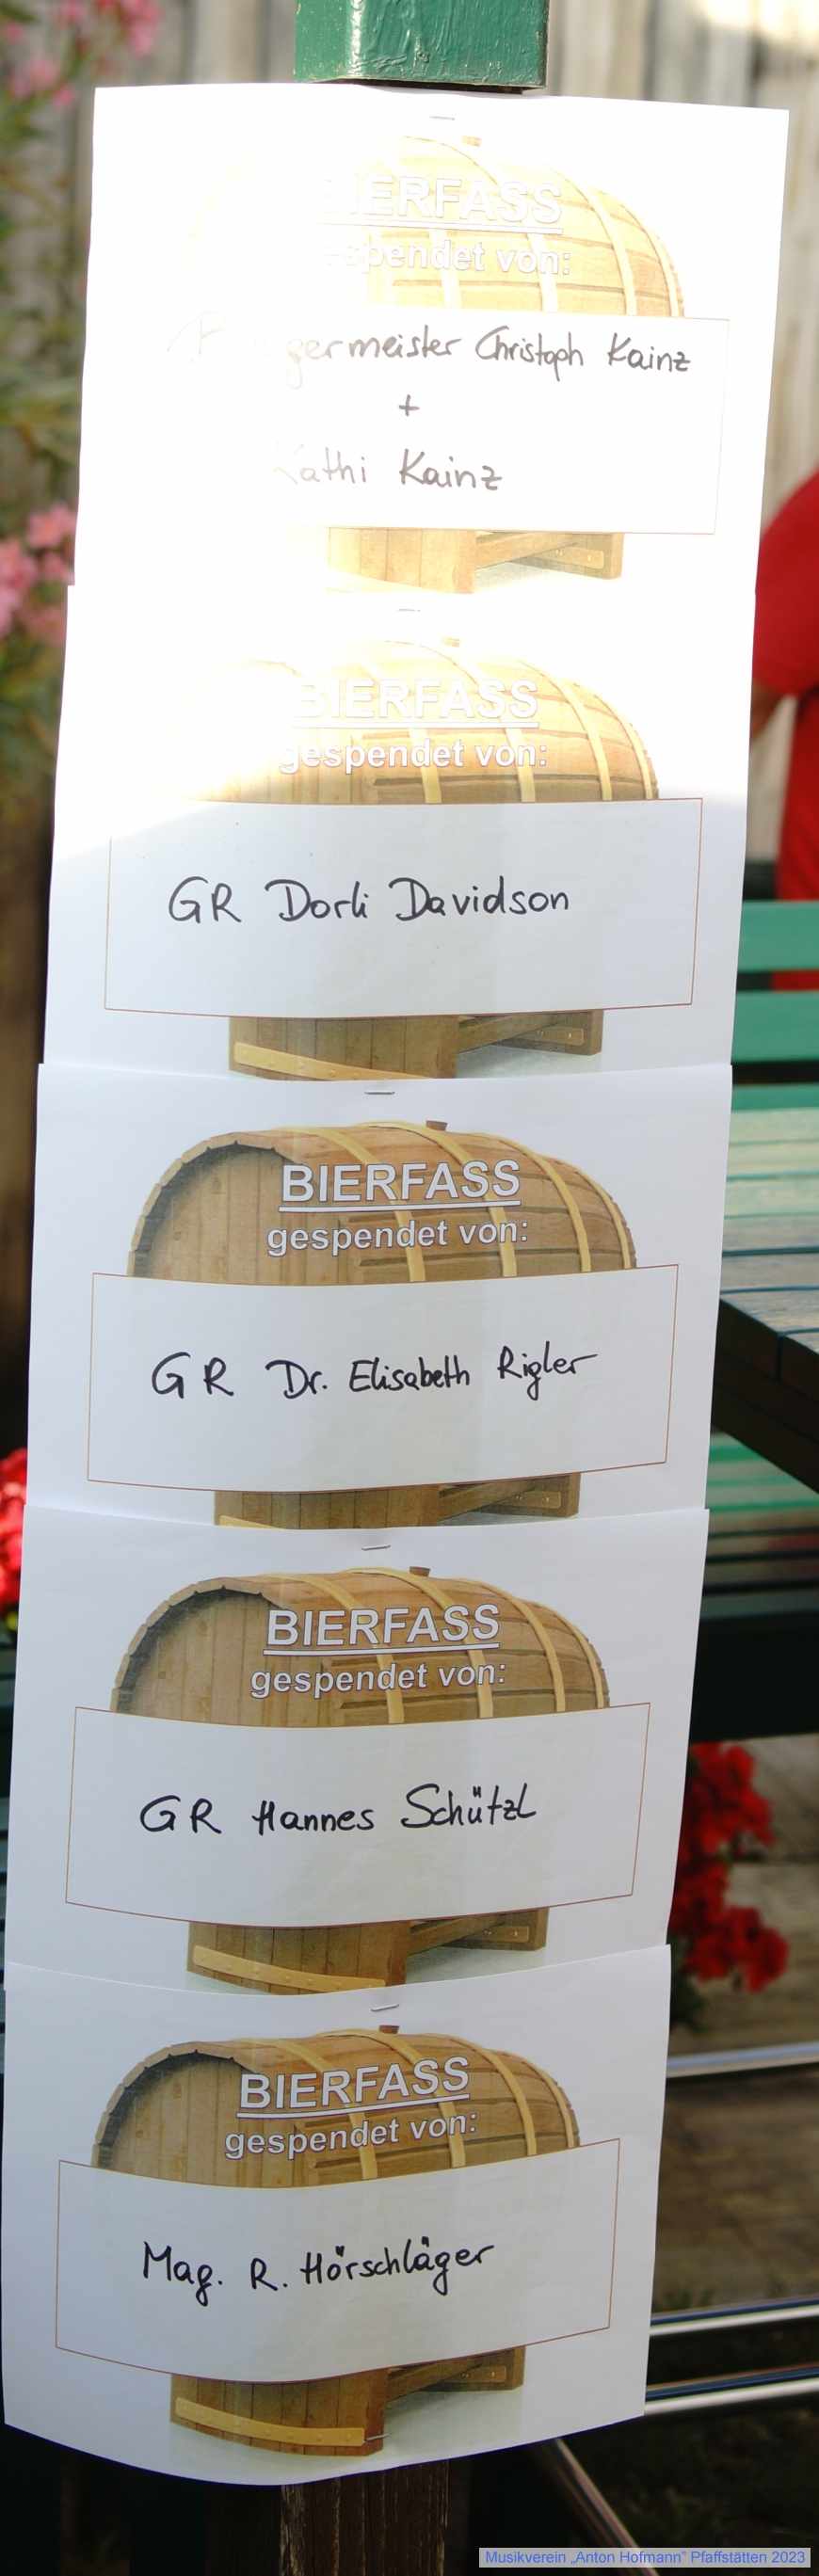 BIERFASS
gespendet von:
Bürgermeister Christoph Kainz
+
Kathi Kainz
BIERFASS
gespendet von:
GR Dorli Davidson
BIERFASS
gespendet von:
GR Dr. Elisabeth Rigler
BIERFASS
gespendet von:
GR Hannes Schützl
BIERFASS
gespendet von:
Mag. R. Hörschläger
Musikverein „Anton Hofmann” Pfaffstätten 2023